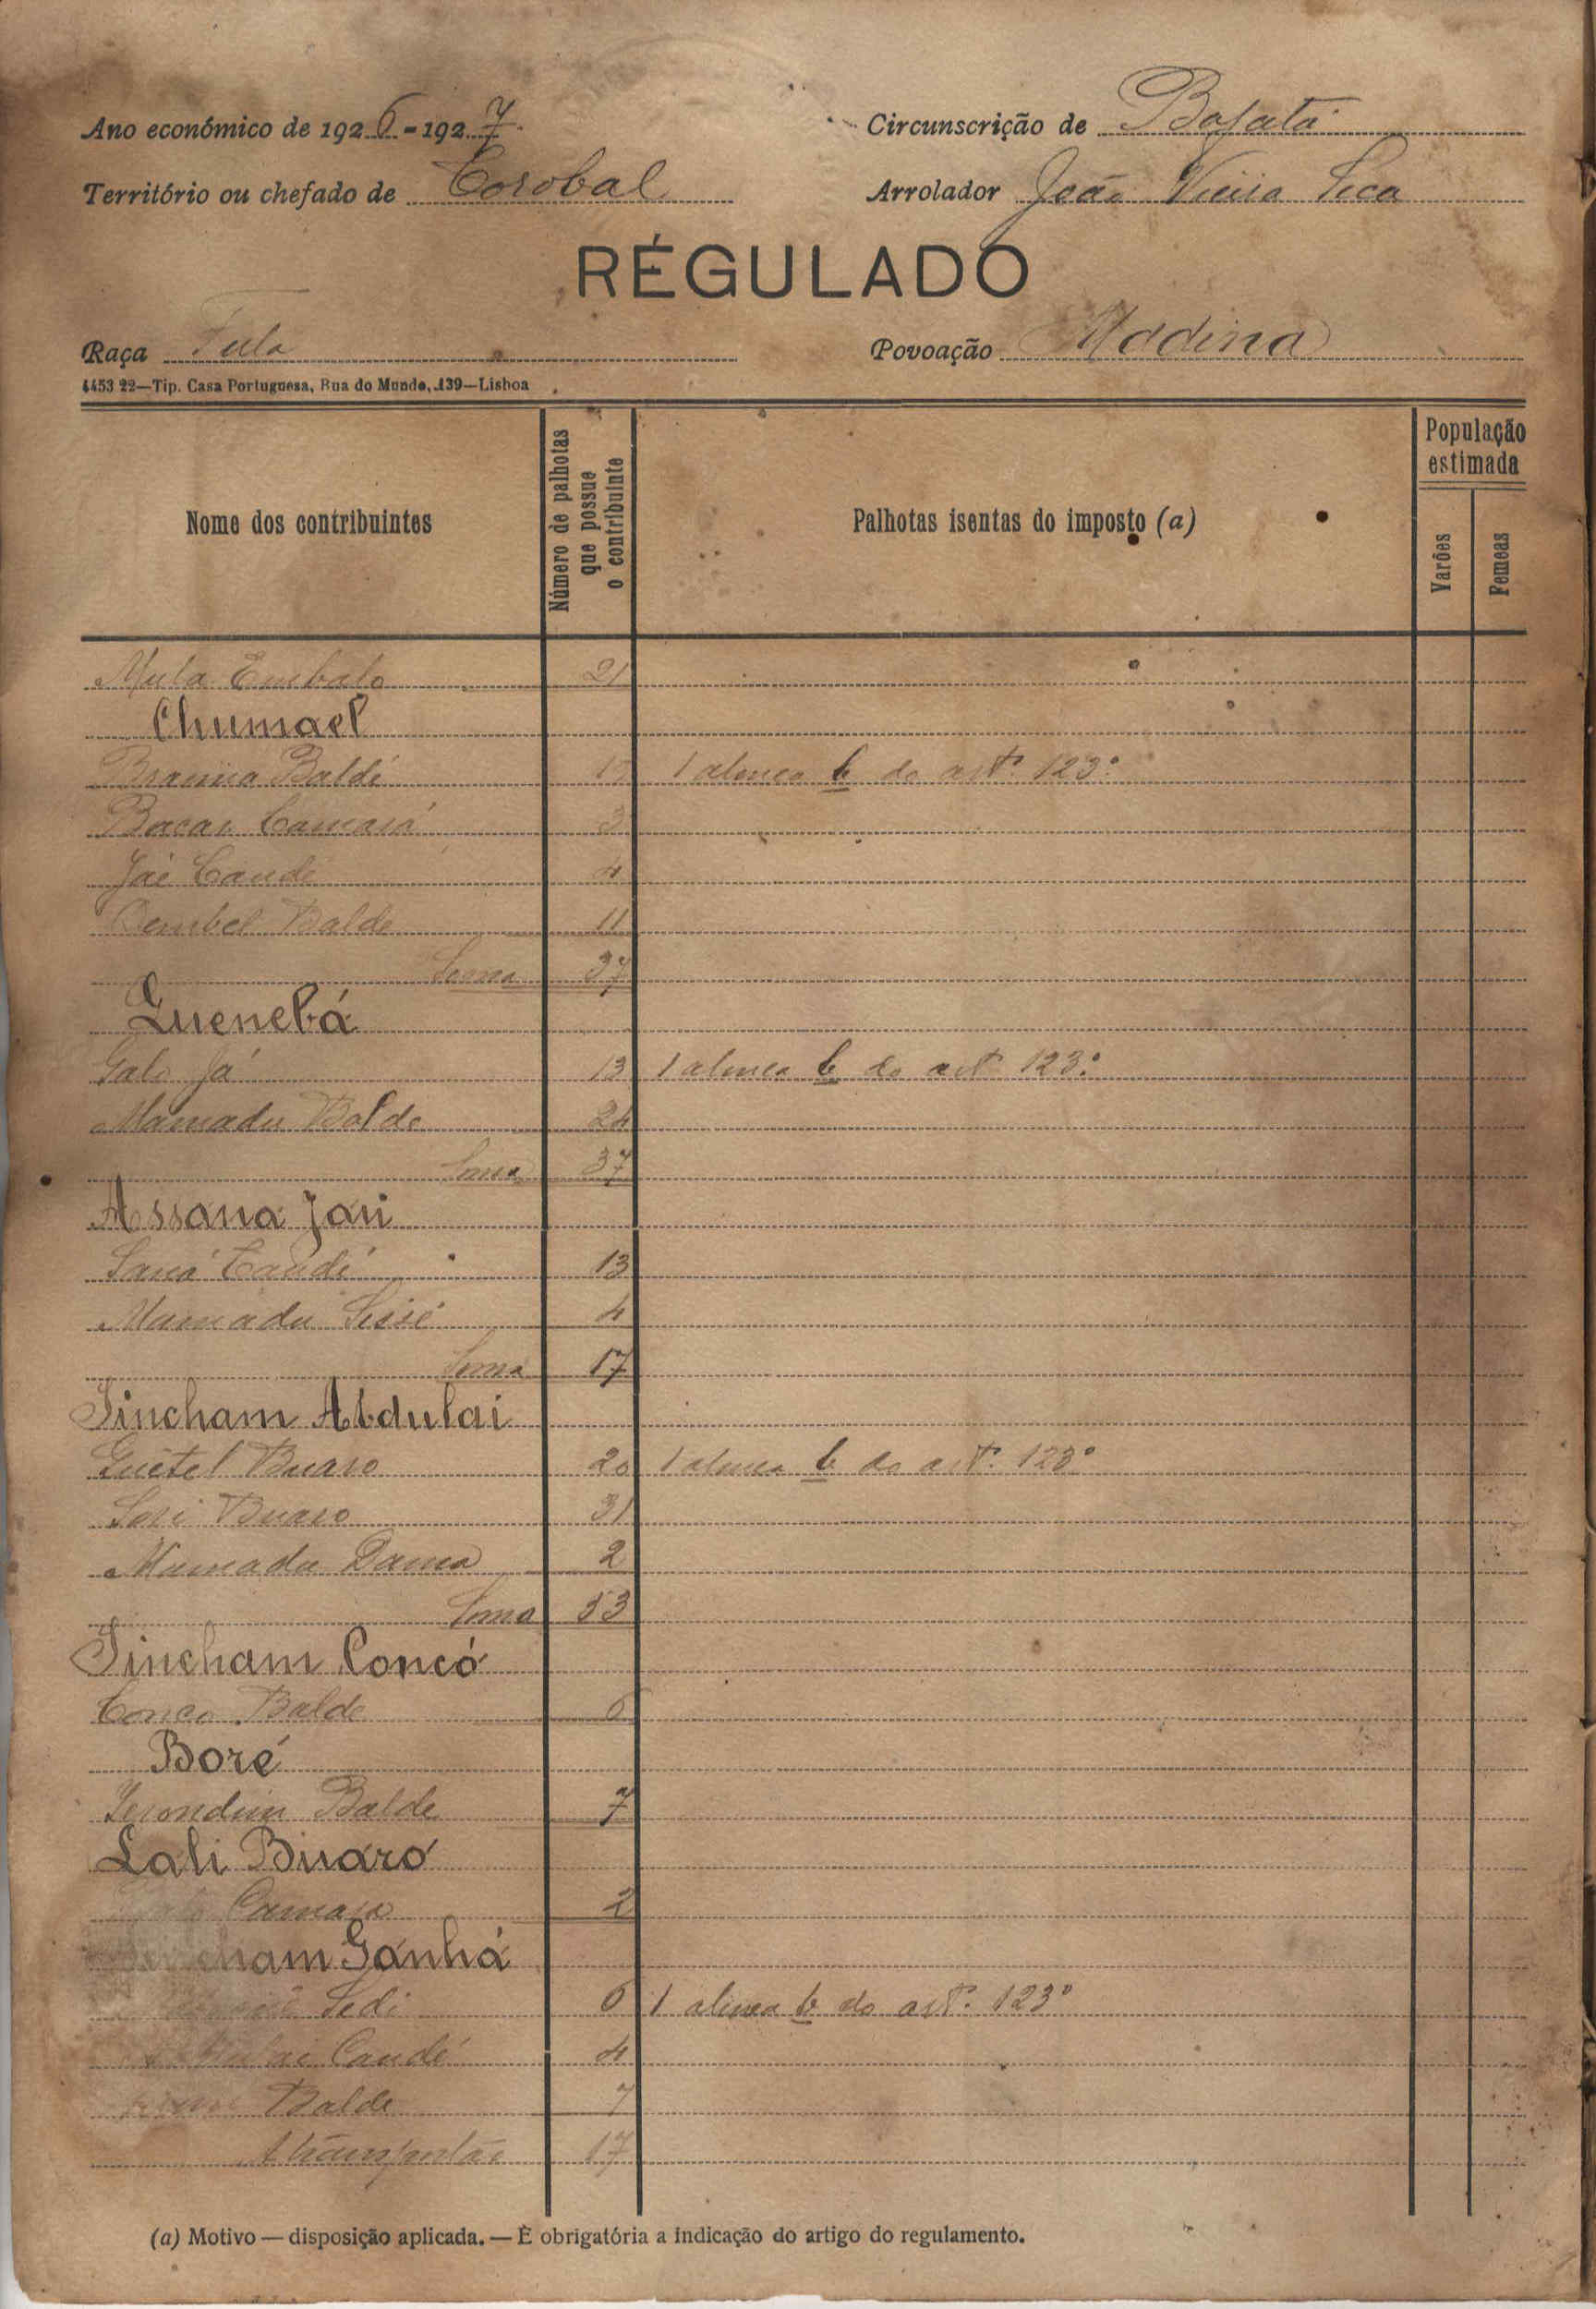 Ano económico de 1926-1927 Circunscrição de Bafatá
Território ou chefado de Corobal Arrolador João Vieira Seca
RÉGULADO
Raça Fula Povoação Madina
4453 22—Tip. Casa Portuguesa, Rua do Mundo, 139—Lisboa
Nome dos contribuintes
Número de palhotas que possue o contribuinte
Palhotas isentas do imposto (a)
População estimada
Varões
Femeas
Mula Embalo 21
Chumael
Braima Baldé 19 1 alinea b do artº 123º
Bacar Camará 3
Jáe Candé 4
Dembel Balde 11
Soma 37
Guenebá
Galo Já 13 1 alinea b do artº 123º
Mamadu Balde 24
Soma 37
Assana Jau
Saná Candé 13
Mamadu Sissé 4
Soma 17
Sincham Abdulai
Guetel Buaro 20 1 alinea b do artº 123º
Sori Buaro 31
Mamadu Dama 2
Soma 53
Sincham Concó
Conco Balde 6
Boré
Balde 7
Lali Buaró
Camara 2
Ganhá
Sedi 6 1 alinea b do artº 123º
Candé 4
Balde 7
A transportar 17
(a) Motivo — disposição aplicada. — È obrigatória a indicação do artigo do regulamento.